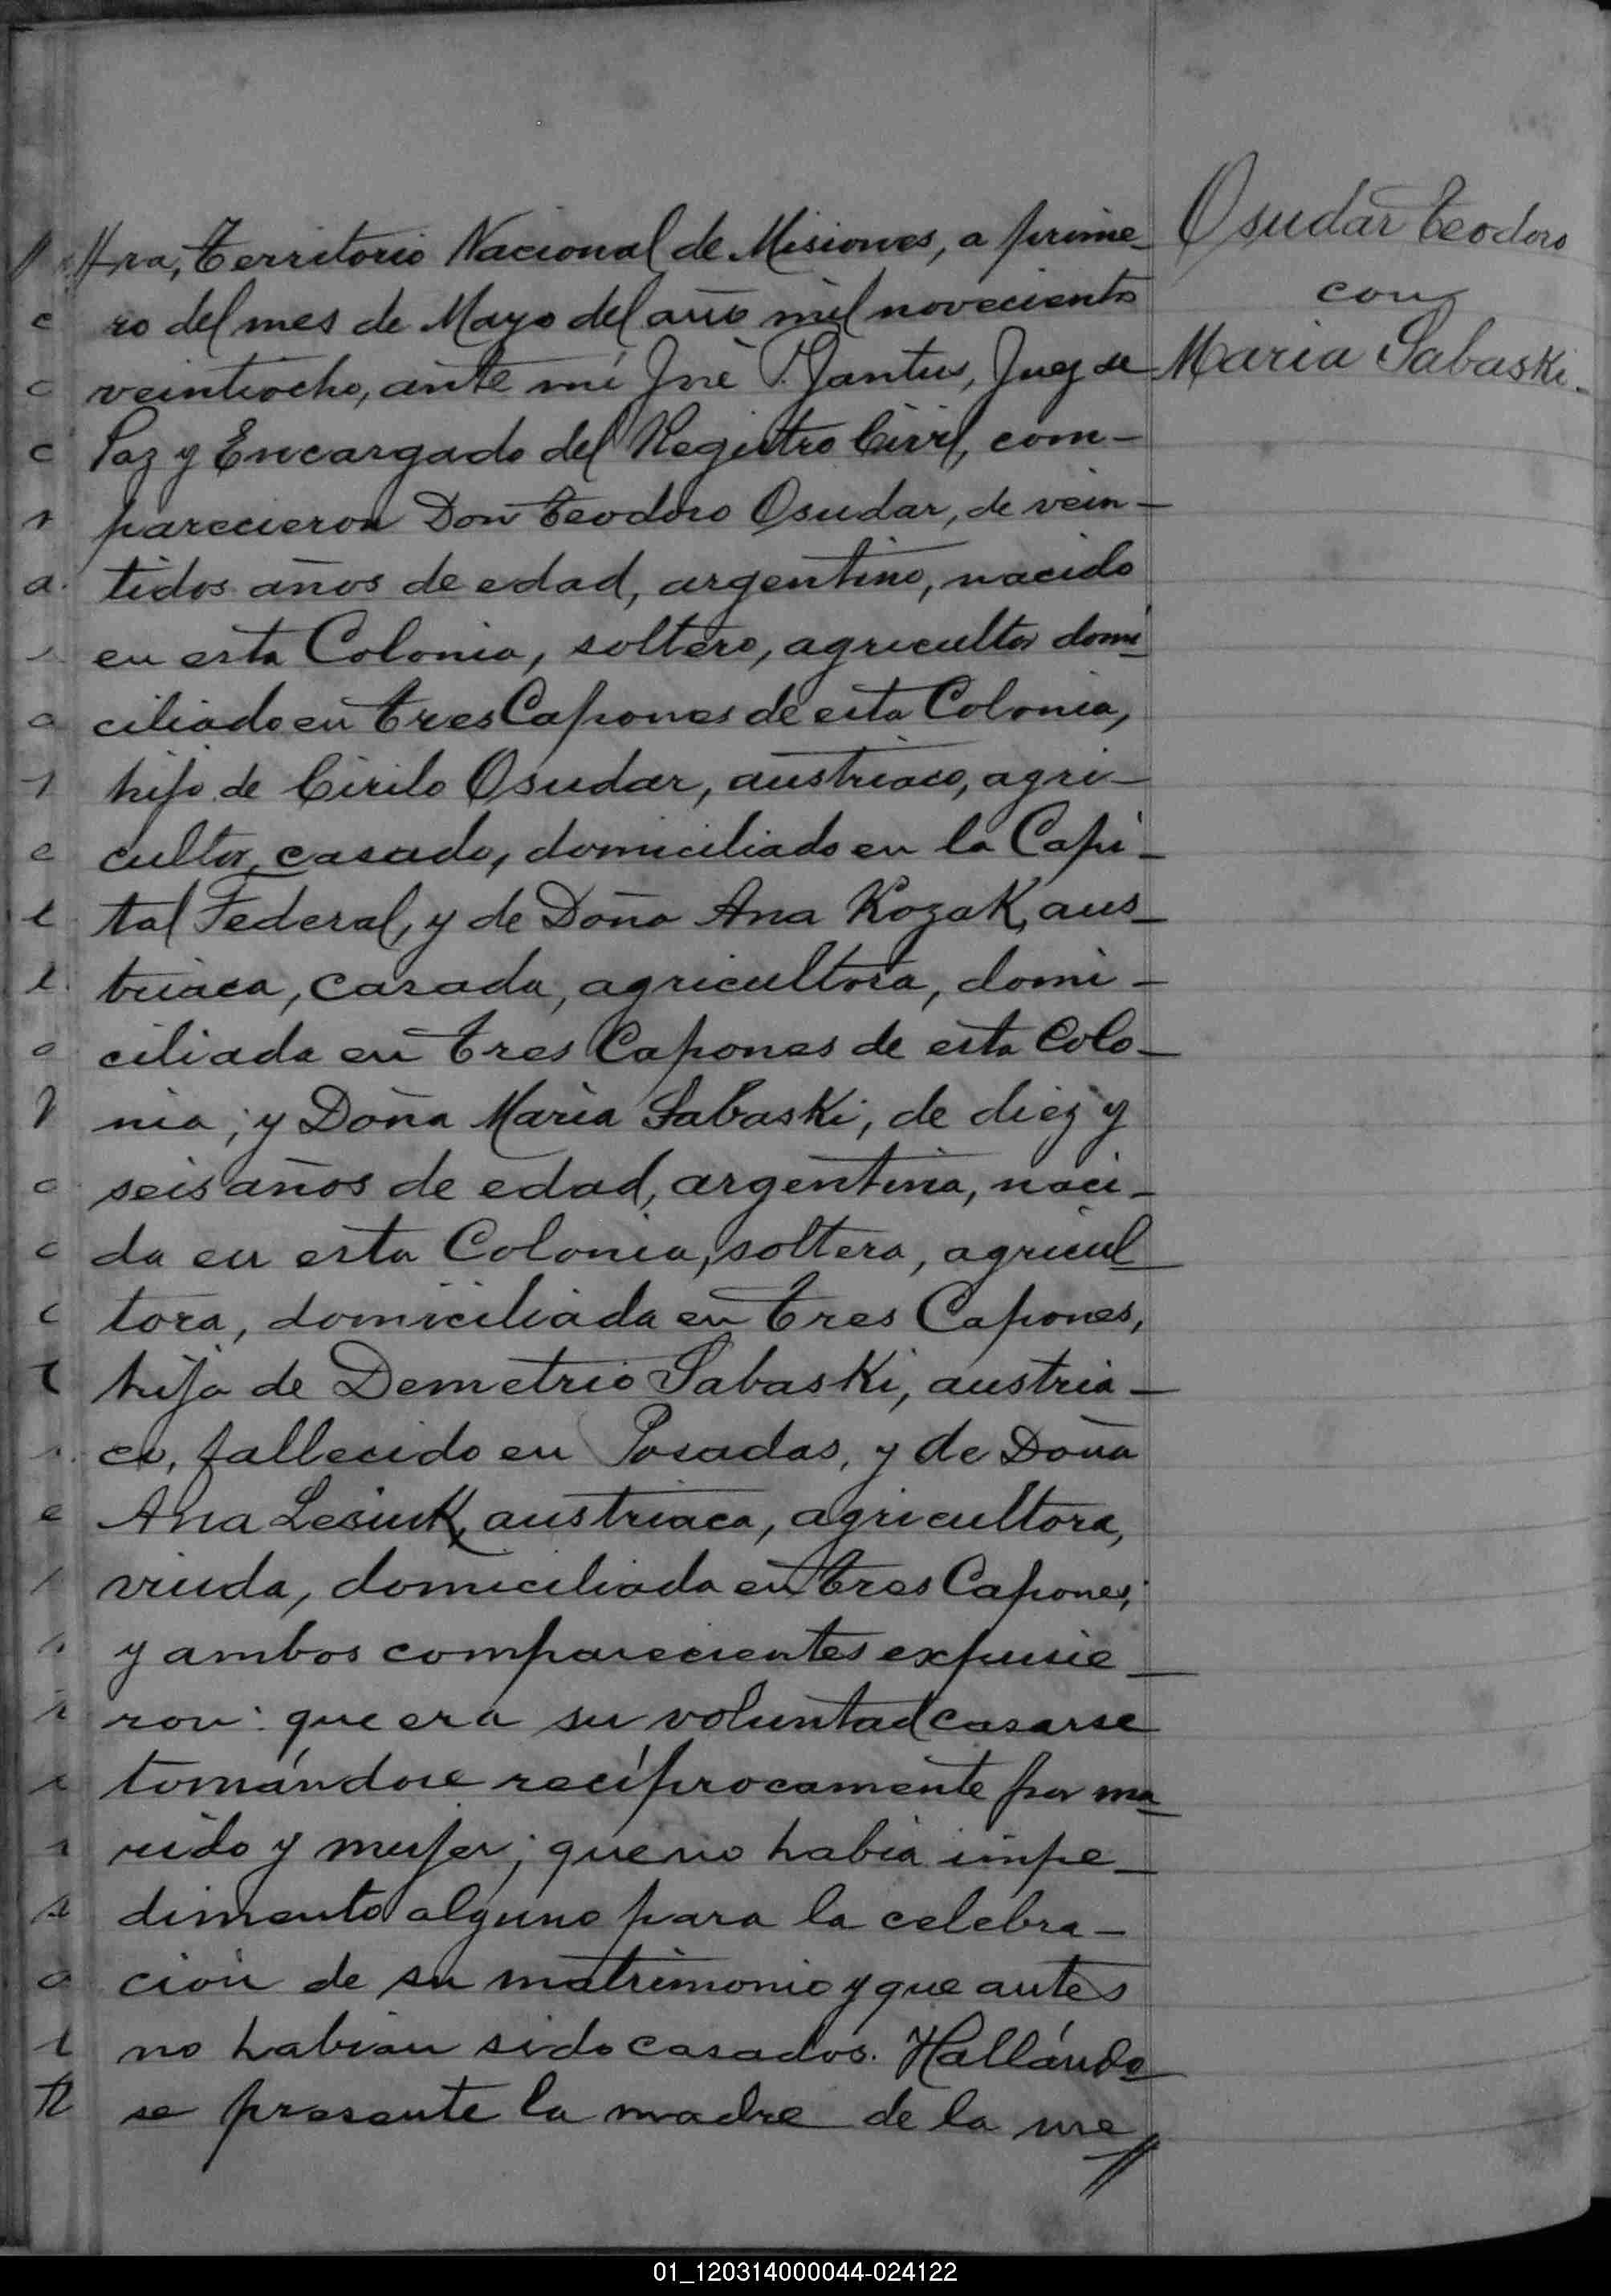 Osudar Teodoro
con
Maria Sabaski.
//tra, Territorio Nacional de Misiones, a prime-
ro del mes de Mayo del año mil novecientos
veintiocho, ante mí José Jantus, Juez de
Paz y Encargado del Registro Civil, com-
parecieron Don Teodoro Osudar, de vein-
tidos años de edad, argentino, nacido
en esta Colonia, soltero, agricultor domi-
ciliado en Tres Capones de esta Colonia,
hijo de Cirilo Osudar, austriaco, agri-
cultor, casado, domiciliado en la Capi-
tal Federal, y de Doña Ana Kozak, aus-
triaca, casada, agricultora, domi-
ciliada en Tres Capones de esta Colo-
nia; y Doña Maria Sabaski, de diez y
seis años de edad, argentina, naci-
da en esta Colonia, soltera, agricul-
tora, domiciliada en Tres Capones,
hija de Demetrio Sabaski, austria-
co, fallecido en Posadas, y de Doña
Ana Lesiuk, austriaca, agricultora,
viuda, domiciliada en Tres Capones;
y ambos comparecientes expusie-
ron: que era su voluntad casarse
tomándose recíprocamente por ma-
rido y mujer; que no habia impe-
dimento alguno para la celebra-
ción de su matrimonio y que antes
no habian sido casados. Hallándo-
se presente la madre de la me//
01_120314000044-024122